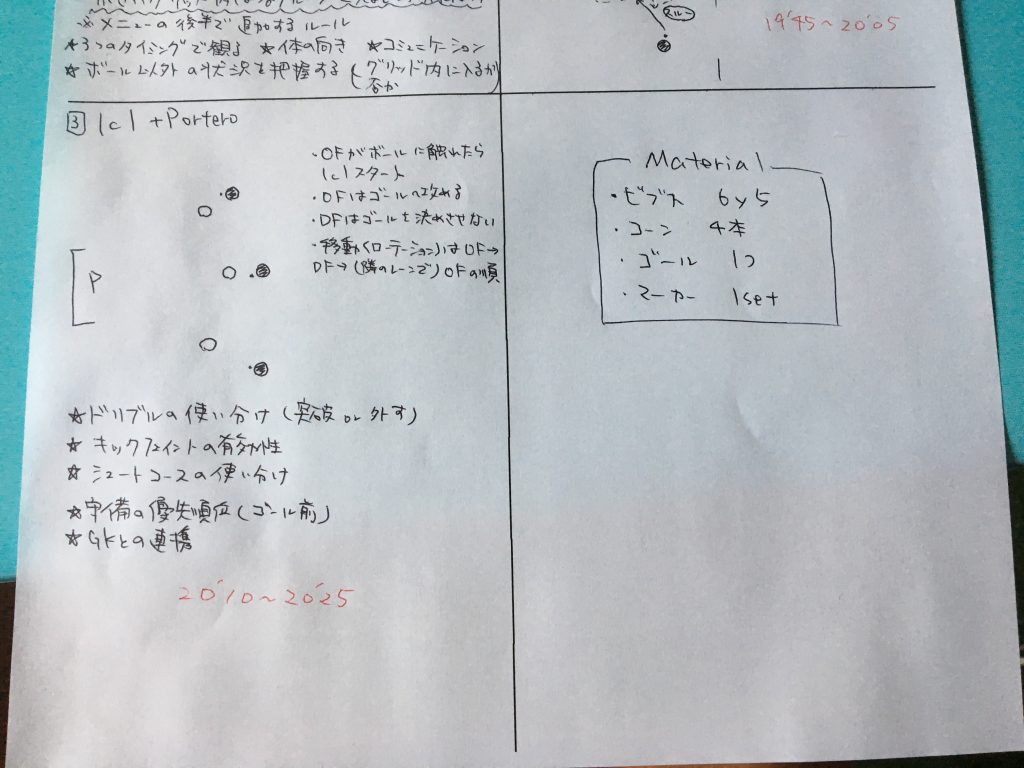 ※メニューの後半で追加するルール
★3つのタイミングで観る ★体の向き ★コミュニケーション
★ボール以外の状況を把握する(グリッド内に入るか
否か)
スルー
19'45～20'05
3 1c1+Portero
・OFがボールに触れたら
1c1スタート
・OFはゴールへ攻める
・DFはゴールを決めさせない
・移動(ローテーション)はOF→
DF→(隣のレーンで)OFの順
P
★ドリブルの使い分け(突破or外す)
★キックフェイントの有効性
★シュートコースの使い分け
★守備の優先順位(ゴール前)
★GKとの連携
20'10～20'25
Material
・ビブス 6y5
・コーン 4本
・ゴール 1つ
・マーカー 1set